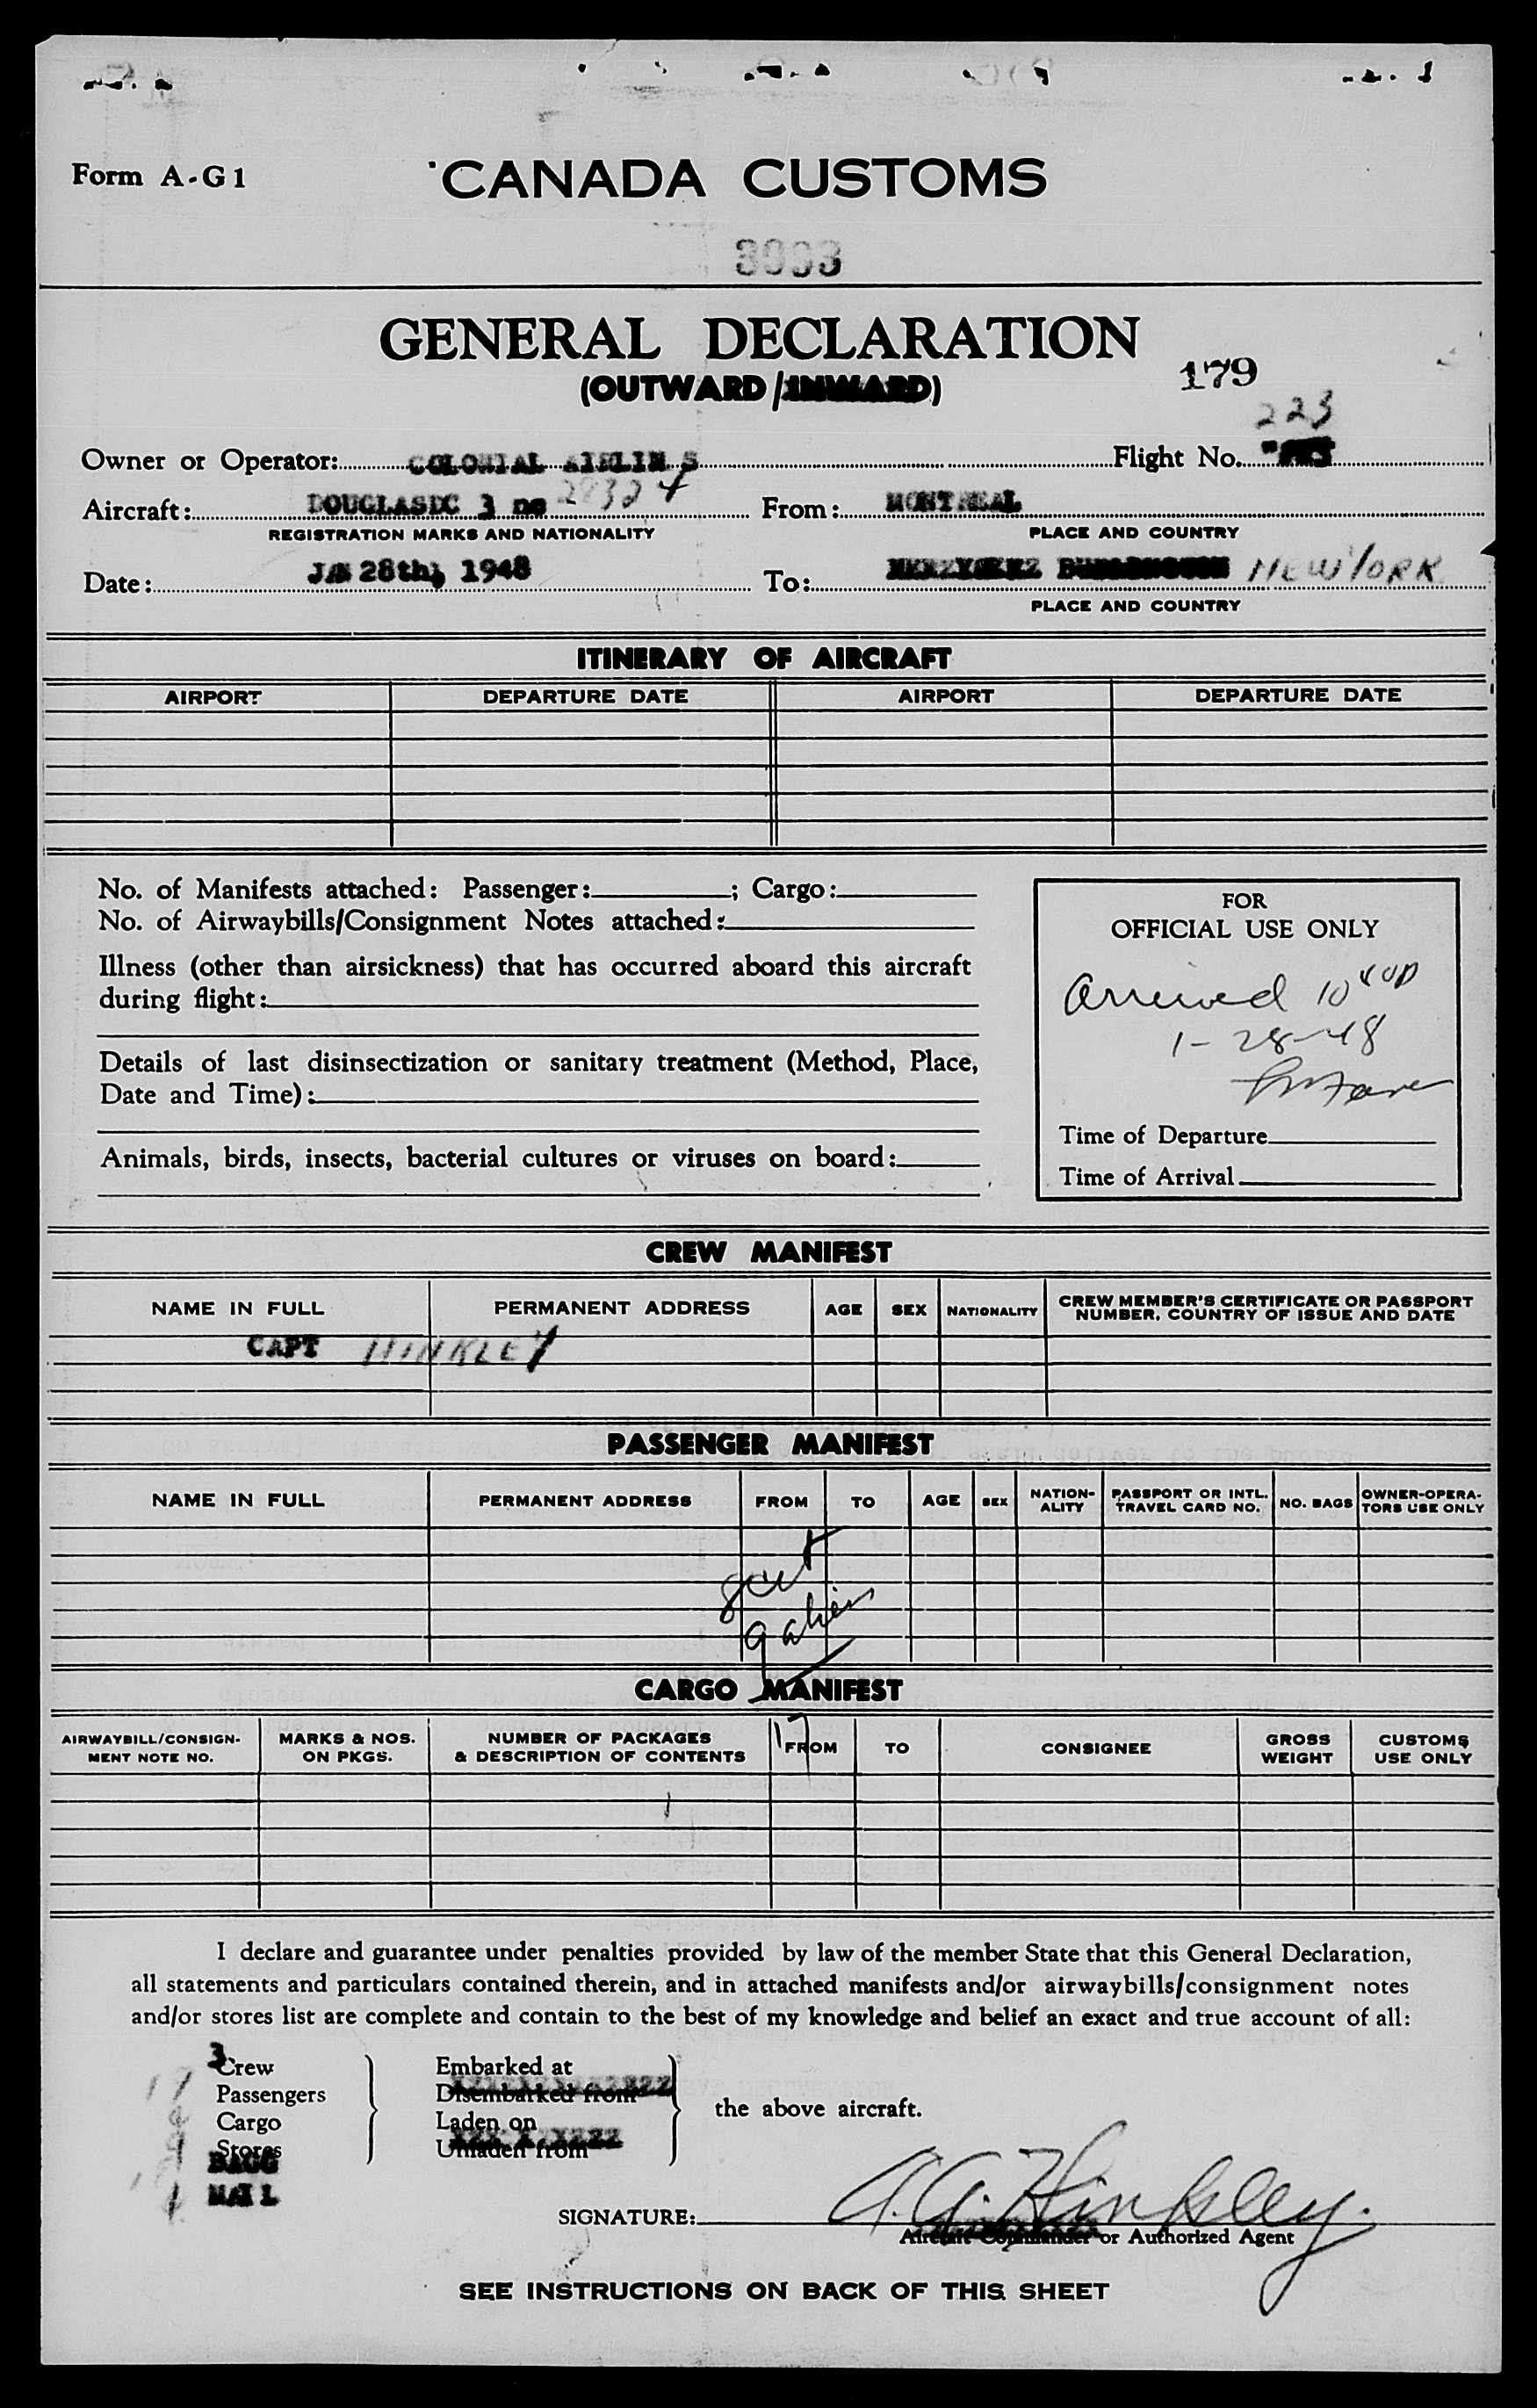 Form A-G1
CANADA CUSTOMS
GENERAL DECLARATION
(OUTWARD/INWARD)
179
223
Owner or Operator: COLONIAL AIRLIN S Flight No.
Aircraft: DOUGLASDC 3 no 28324 From: MONTREAL
REGISTRATION MARKS AND NATIONALITY PLACE AND COUNTRY
Date: JAN 28th, 1948 To: NEW YORK
PLACE AND COUNTRY
ITINERARY OF AIRCRAFT
AIRPORT DEPARTURE DATE AIRPORT DEPARTURE DATE
No. of Manifests attached: Passenger: ; Cargo:
No. of Airwaybills/Consignment Notes attached:
Illness (other than airsickness) that has occurred aboard this aircraft
during flight:
Details of last disinsectization or sanitary treatment (Method, Place,
Date and Time):
Animals, birds, insects, bacterial cultures or viruses on board:
FOR
OFFICIAL USE ONLY
Arrived 10 40P
1-28-48
Time of Departure
Time of Arrival
CREW MANIFEST
NAME IN FULL PERMANENT ADDRESS AGE SEX NATIONALITY CREW MEMBER'S CERTIFICATE OR PASSPORT NUMBER, COUNTRY OF ISSUE AND DATE
CAPT HINKLEY
PASSENGER MANIFEST
NAME IN FULL PERMANENT ADDRESS FROM TO AGE SEX NATION-ALITY PASSPORT OR INTL. TRAVEL CARD NO. NO. BAGS OWNER-OPERA-TORS USE ONLY
8 cit
9 alien
17
CARGO MANIFEST
AIRWAYBILL/CONSIGN-MENT NOTE NO. MARKS & NOS. ON PKGS. NUMBER OF PACKAGES & DESCRIPTION OF CONTENTS FROM TO CONSIGNEE GROSS WEIGHT CUSTOMS USE ONLY
I declare and guarantee under penalties provided by law of the member State that this General Declaration,
all statements and particulars contained therein, and in attached manifests and/or airwaybills/consignment notes
and/or stores list are complete and contain to the best of my knowledge and belief an exact and true account of all:
3 Crew Embarked at
17 Passengers Disembarked from
Cargo Laden on
Stores Unladen from
the above aircraft.
BAGG
MAIL
SIGNATURE: A.A. Hinkley
Aircraft Commander or Authorized Agent
SEE INSTRUCTIONS ON BACK OF THIS SHEET